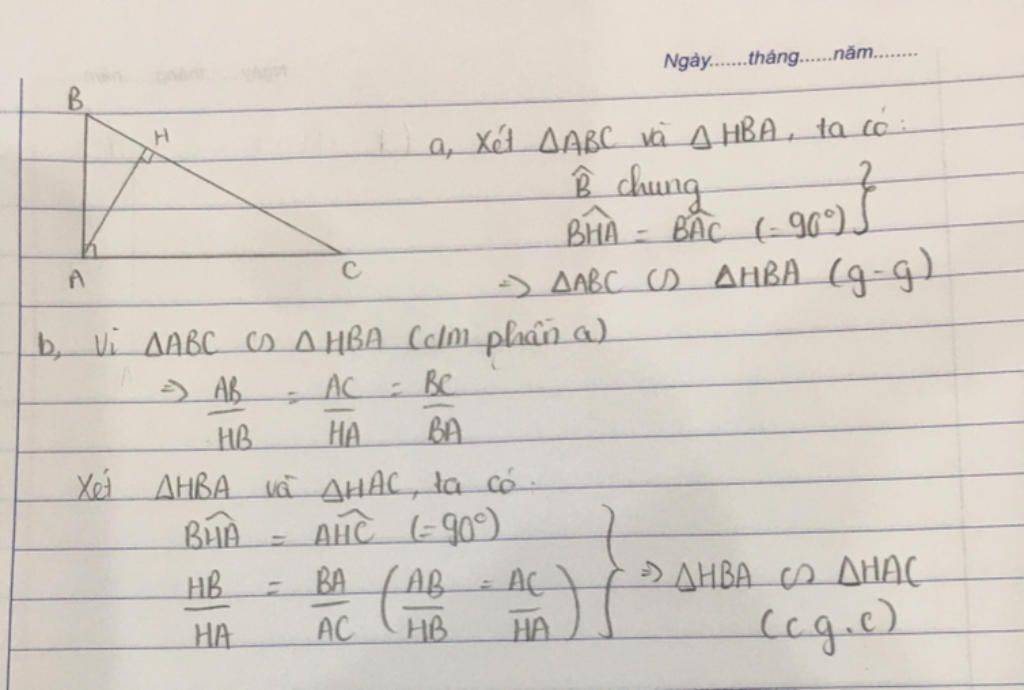 Ngày.......tháng......năm........
B
H
A
C
a, Xét ΔABC và ΔHBA, ta có:
B̂ chung
BĤA = BÂC (=90°) }
=> ΔABC ∽ ΔHBA (g-g)
b, Vì ΔABC ∽ ΔHBA (c/m phần a)
=> AB/HB = AC/HA = BC/BA
Xét ΔHBA và ΔHAC, ta có.
BĤA = AĤC (=90°)
HB/HA = BA/AC (AB/HB = AC/HA) } => ΔHBA ∽ ΔHAC
(c g.c)